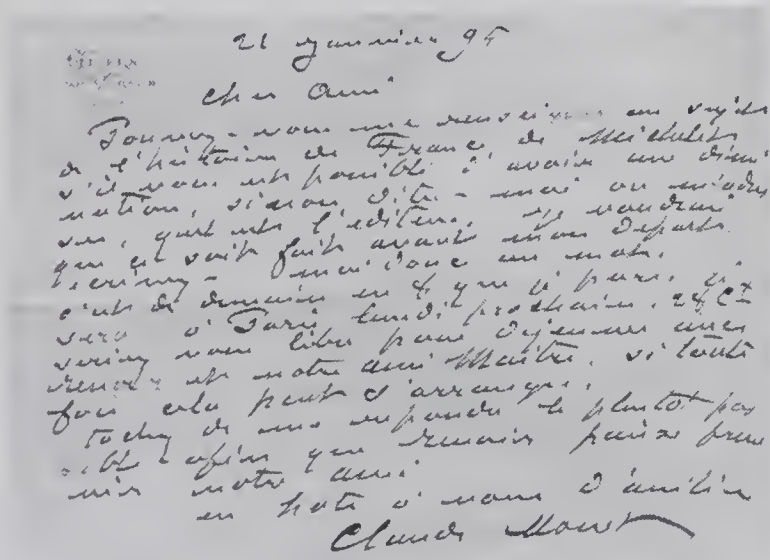 21 Janvier 95
Cher Ami
Pouvez-vous me renseigner au sujet
de l'histoire de France de Michelet
s'il vous est possible d'avoir une dimi
nution, sinon dites-moi ou m'adres
ser, quel est l'editeur. Je voudrais
que ce soit fait avant mon depart.
ecrivez-moi donc un mot.
c'est de demain en 8 que je pars, je
serai à Paris lundi prochain, 28 Ct
seriez vous libre pour dejeuner avec
renoir et notre ami Maitre, si toute
fois cela peut s'arranger.
tachez de me repondre le plutot pos
sible afin que renoir puisse preve
nir notre ami
en hate à vous d'amitié
Claude Monet